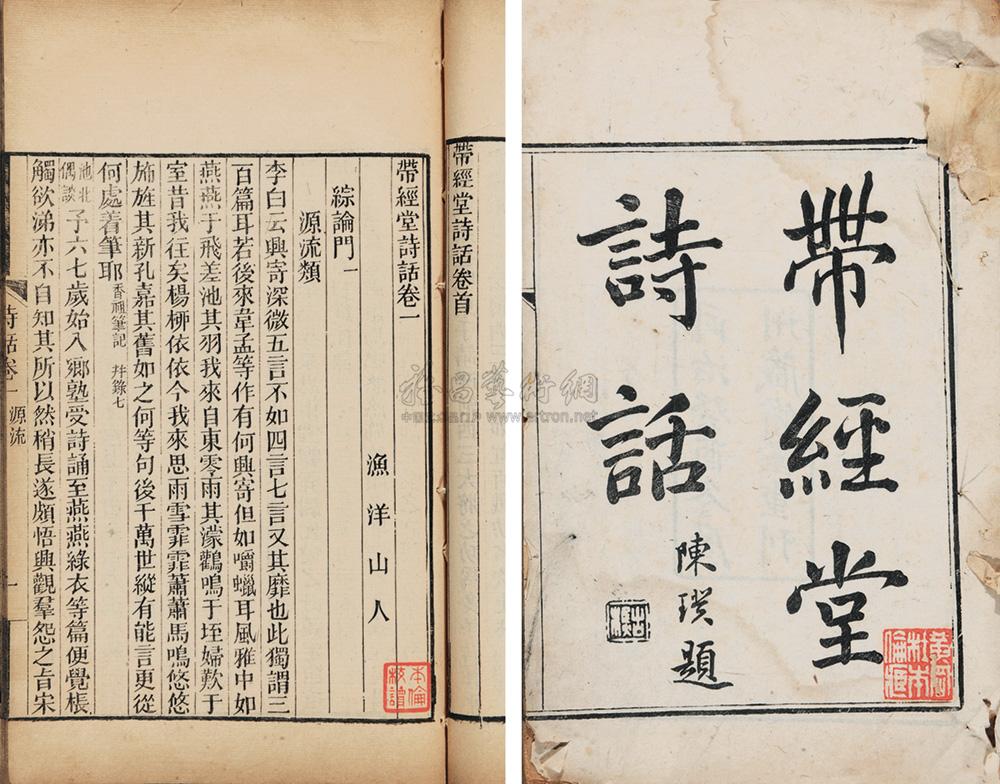 帶經堂
詩話
陳璞題
帶經堂詩話卷首
帶經堂詩話卷一
漁洋山人
綜論門一
源流類
李白云興寄深微五言不如四言七言又其靡也此獨謂三
百篇耳若後來韋孟等作有何興寄但如嚼蠟耳風雅中如
燕燕于飛差池其羽我來自東零雨其濛鸛鳴于垤婦歎于
室昔我往矣楊栁依依今我來思雨雪霏霏蕭蕭馬鳴悠悠
旆旌其新孔嘉其舊如之何等句後千萬世縱有能言更從
何處着筆耶香祖筆記 幷錄七
池北偶談予六七歲始入鄉塾受詩誦至燕燕綠衣等篇便覺棖
觸欲涕亦不自知其所以然稍長遂頗悟興觀羣怨之旨宋
詩話卷一 源流 一
www.artron.net